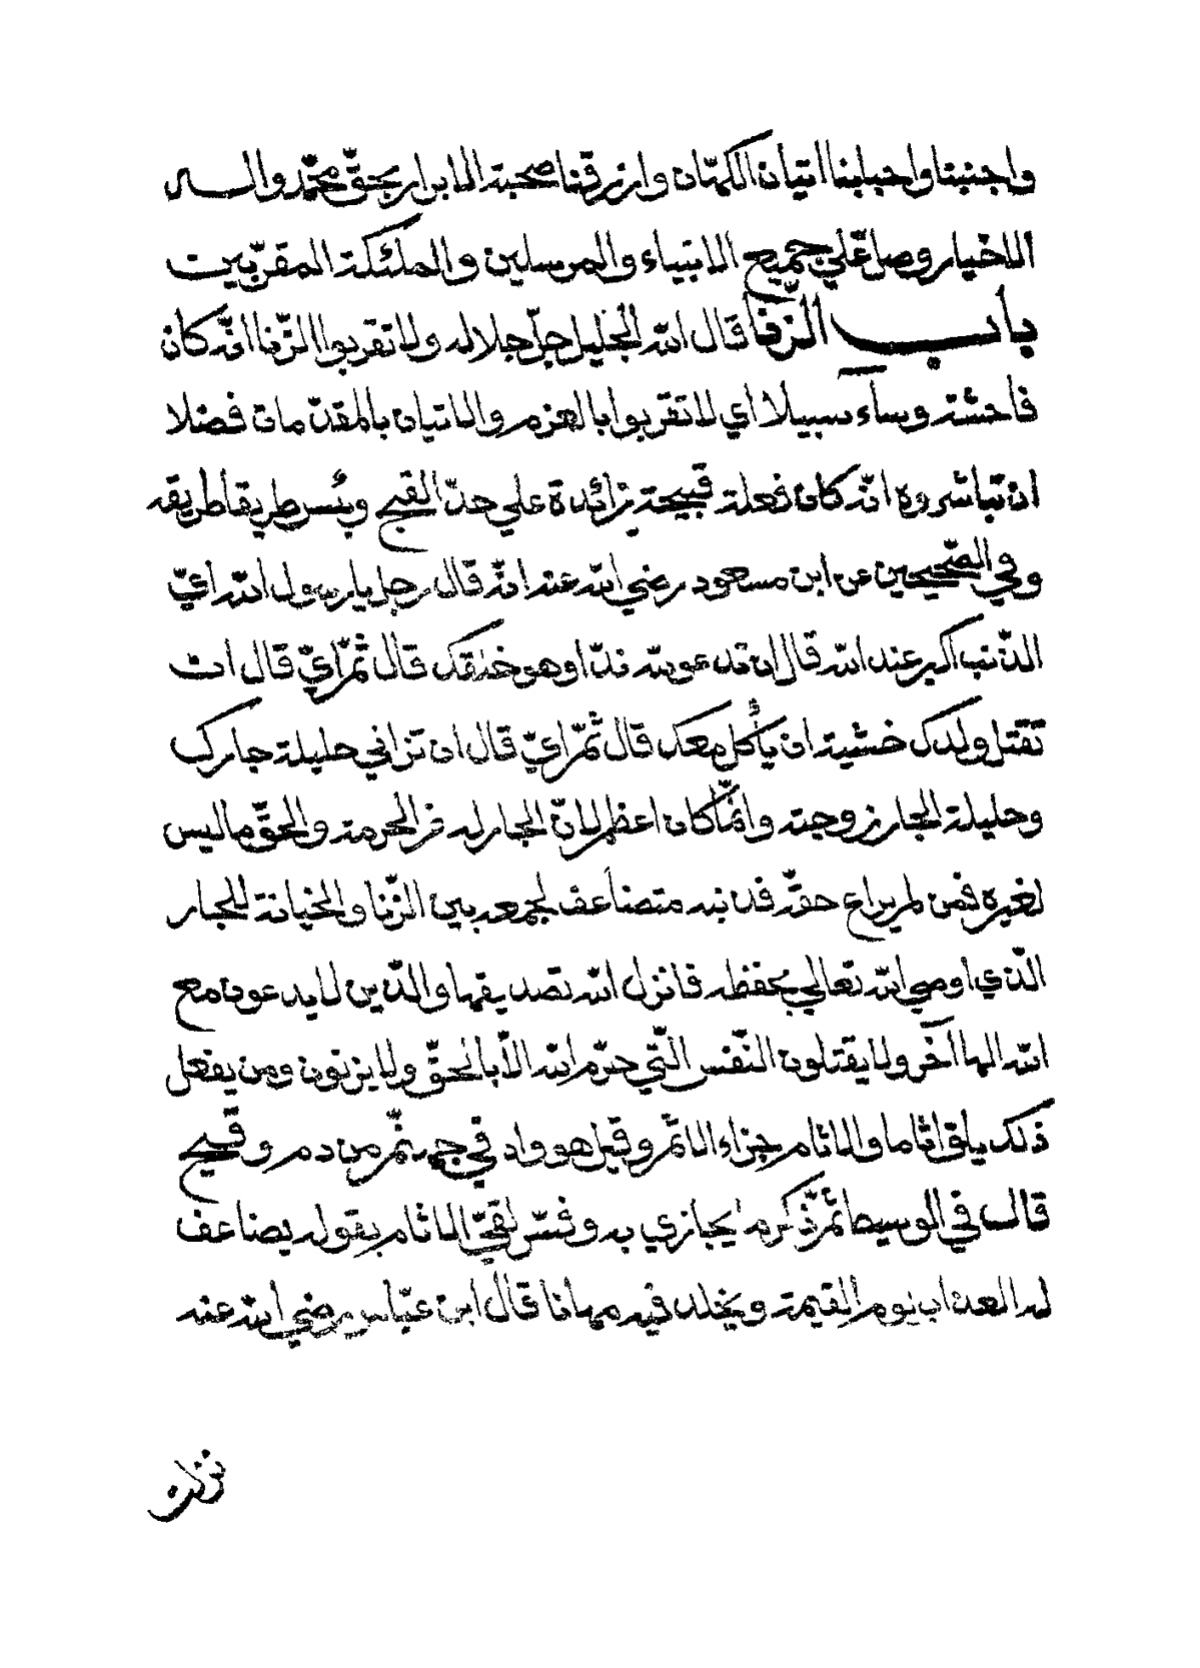 واجنبنا واحبابنا اتيان الكهّان وارزقنا صحبة الابرار بحقّ محمّد واله
الاخيار وصل علي جميع الانبياء والمرسلين والملئكة المقرّبين
باب الزّنا قال الله الجليل جلّ جلاله ولا تقربوا الزّنا انّه كان
فاحشة وساء سبيلا اي لا تقربوا بالعزم والاتيان بالمقدّمات فضلا
ان تباشروه انّه كان فعلة قبيحة زائدة علي حدّ القبح وبئس طريقا طريقه
وفي الصّحيحين عن ابن مسعود رضي الله عنه انّه قال رجل يا رسول الله ايّ
الذّنب اكبر عند الله قال ان تدعو لله ندّا وهو خلقك قال ثمّ ايّ قال ان
تقتل ولدك خشية ان ياكل معك قال ثمّ ايّ قال ان تزاني حليلة جارك
وحليلة الجار زوجته وانّما كان اعظم لانّ الجار له من الحرمة والحقّ ما ليس
لغيره فمن لم يراع حقّه فذنبه متضاعف لجمعه بين الزّنا والخيانة للجار
الّذي اوصي الله تعالي بحفظه فانزل الله تصديقها والّذين لا يدعون مع
الله الها آخر ولا يقتلون النّفس الّتي حرّم الله الّا بالحقّ ولا يزنون ومن يفعل
ذلك يلق اثاما والاثام جزاء الاثم وقيل هو واد في جهنّم من دم وقيح
قال في الوسيط ثمّ ذكر ما يجازي به وفسّر لقيّ الاثام بقوله يضاعف
له العذاب يوم القيمة ويخلد فيه مهانا قال ابن عبّاس رضي الله عنه